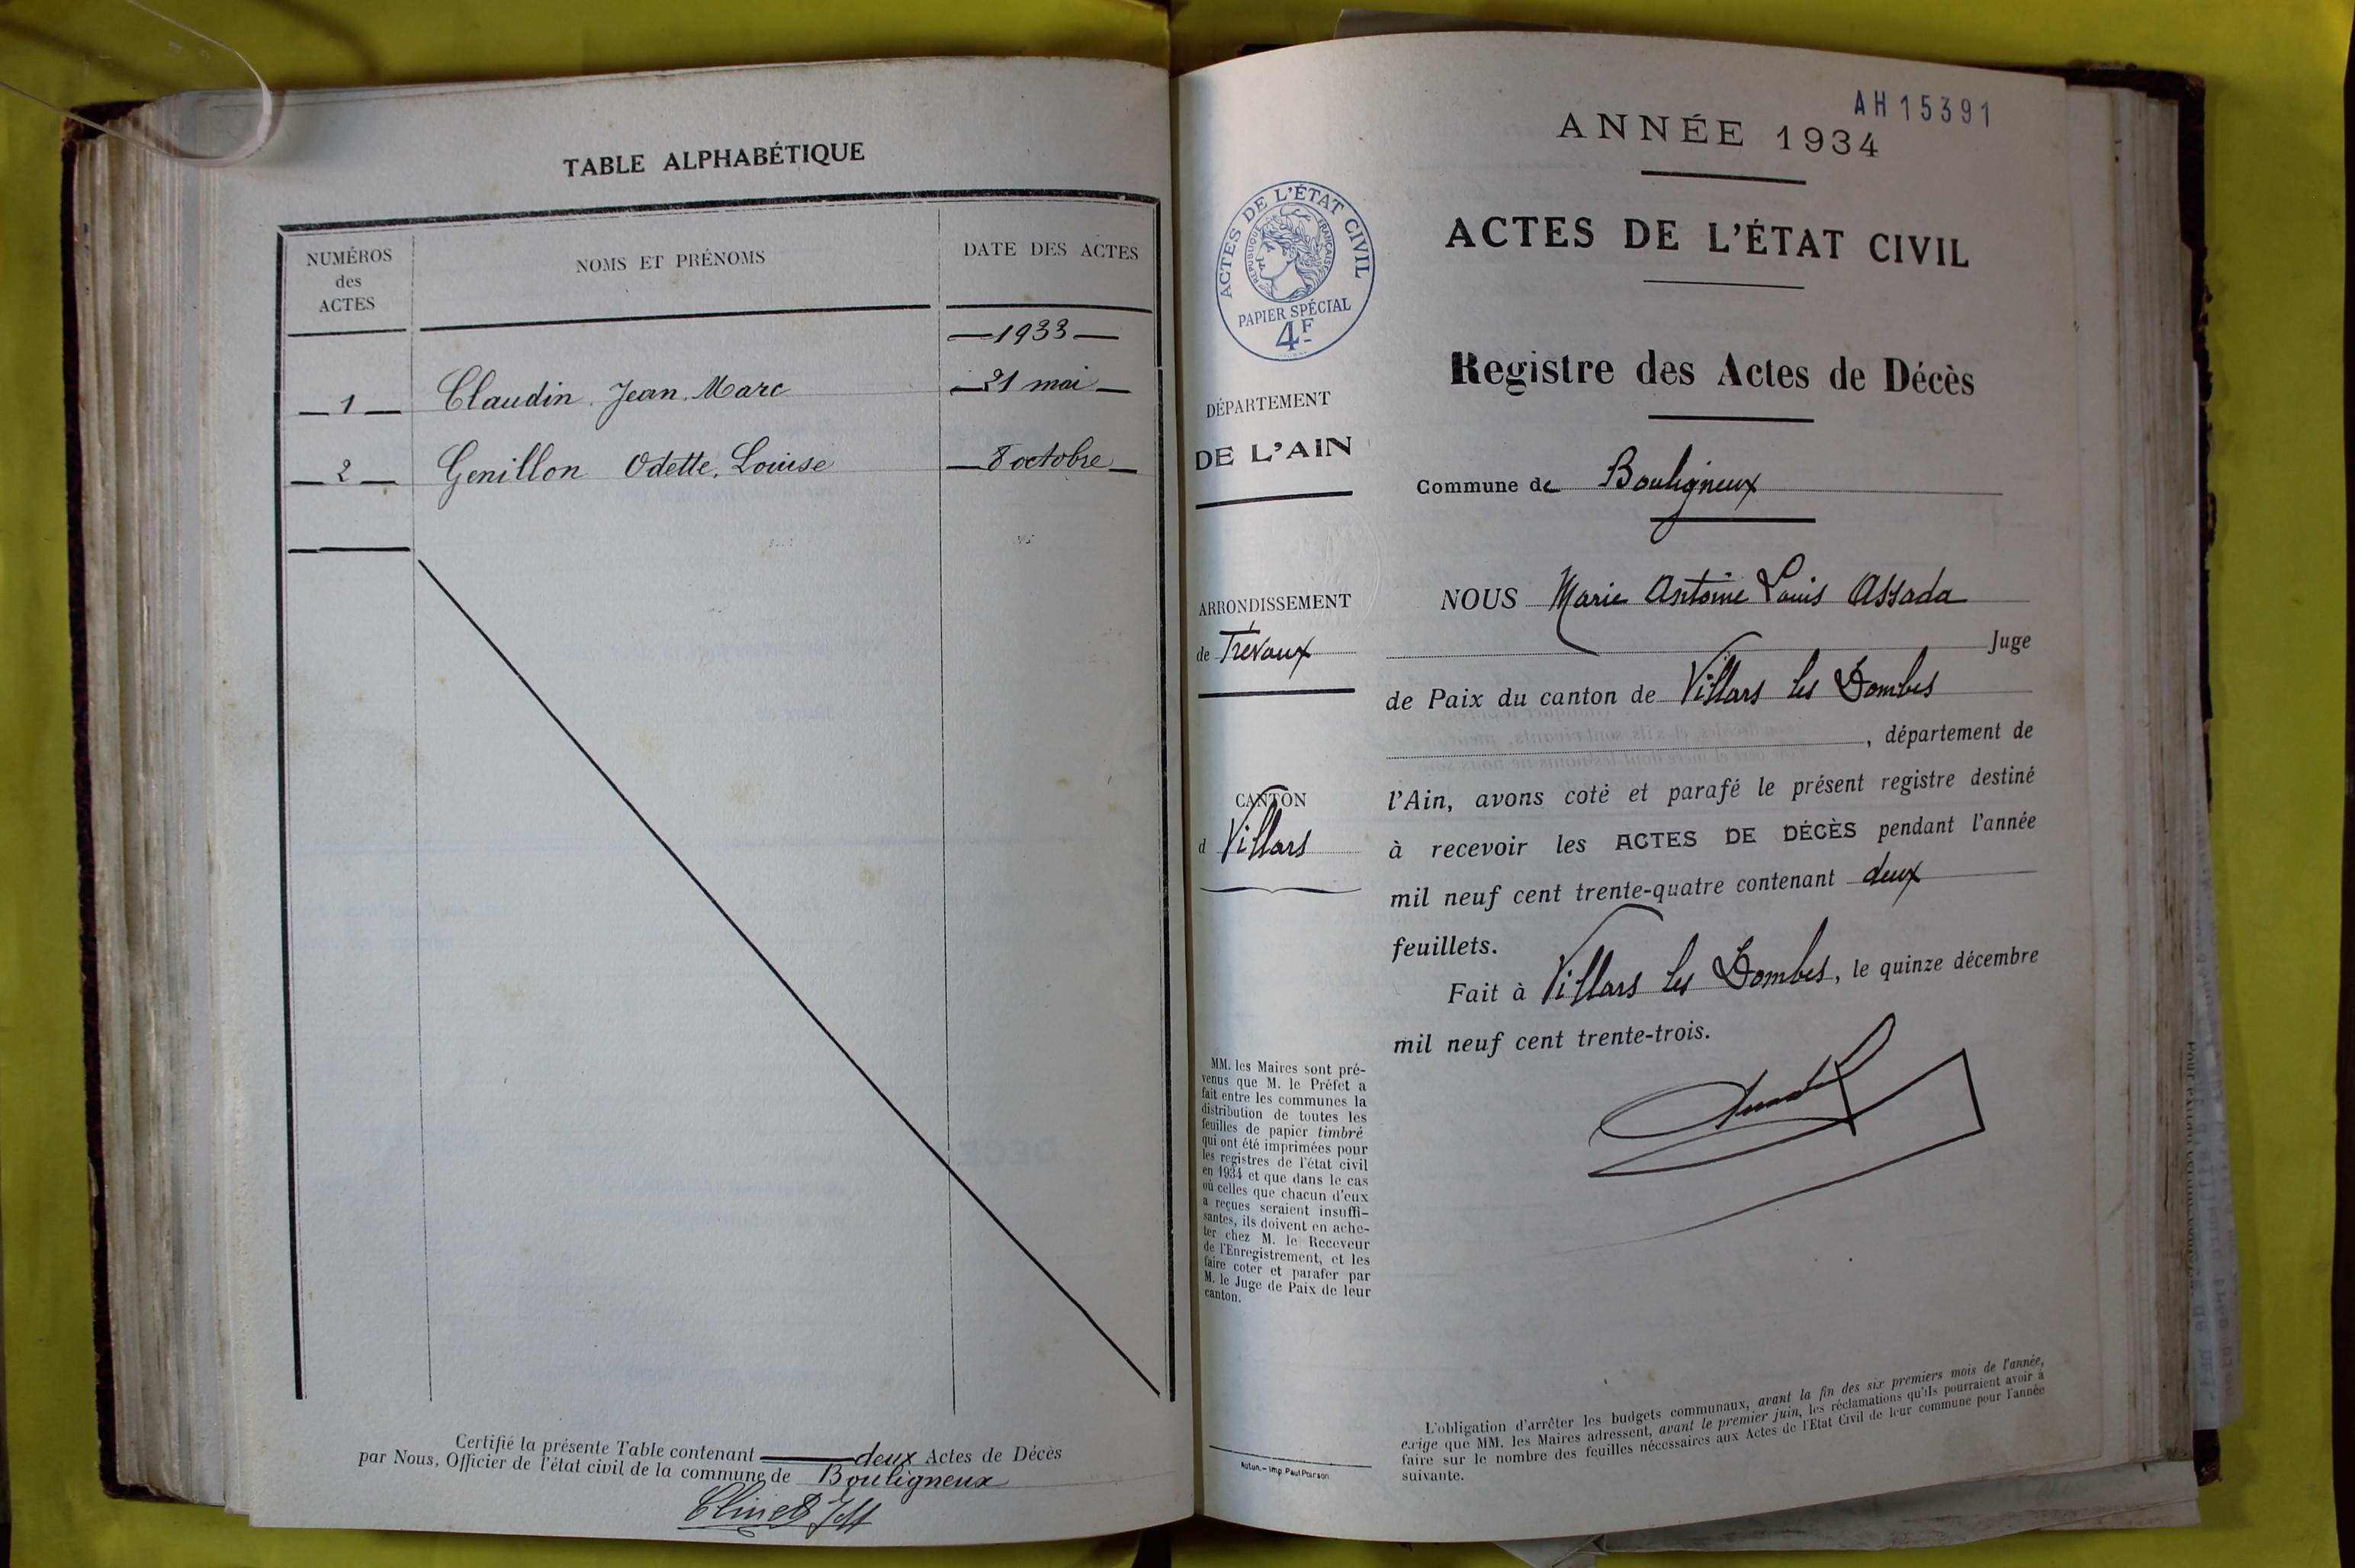 TABLE ALPHABÉTIQUE
NUMÉROS
des
ACTES
NOMS ET PRÉNOMS
DATE DES ACTES
1933
1 Claudin Jean Marc 21 mai
2 Genillon Odette, Louise 8 octobre
Certifié la présente Table contenant deux Actes de Décès
par Nous, Officier de l'état civil de la commune de Bouligneux
AH15391
ANNÉE 1934
ACTES DE L'ÉTAT CIVIL
ACTES DE L'ÉTAT CIVIL
RÉPUBLIQUE FRANÇAISE
PAPIER SPÉCIAL
4F
Registre des Actes de Décès
DÉPARTEMENT
DE L'AIN
Commune de Bouligneux
ARRONDISSEMENT
de Trévoux
CANTON
d Villars
NOUS Marie Antoine Louis Assada
Juge
de Paix du canton de Villars les Dombes
, département de
l'Ain, avons coté et parafé le présent registre destiné
à recevoir les ACTES DE DÉCÈS pendant l'année
mil neuf cent trente-quatre contenant deux
feuillets.
Fait à Villars les Dombes, le quinze décembre
mil neuf cent trente-trois.
MM. les Maires sont pré-
venus que M. le Préfet a
fait entre les communes la
distribution de toutes les
feuilles de papier timbré
qui ont été imprimées pour
les registres de l'état civil
en 1934 et que dans le cas
où celles que chacun d'eux
a reçues seraient insuffi-
santes, ils doivent en ache-
ter chez M. le Receveur
de l'Enregistrement, et les
faire coter et parafer par
M. le Juge de Paix de leur
canton.
Autun. – Imp. Paul Poirson
L'obligation d'arrêter les budgets communaux, avant la fin des six premiers mois de l'année,
exige que MM. les Maires adressent, avant le premier juin, les réclamations qu'ils pourraient avoir à
faire sur le nombre des feuilles nécessaires aux Actes de l'Etat Civil de leur commune pour l'année
suivante.